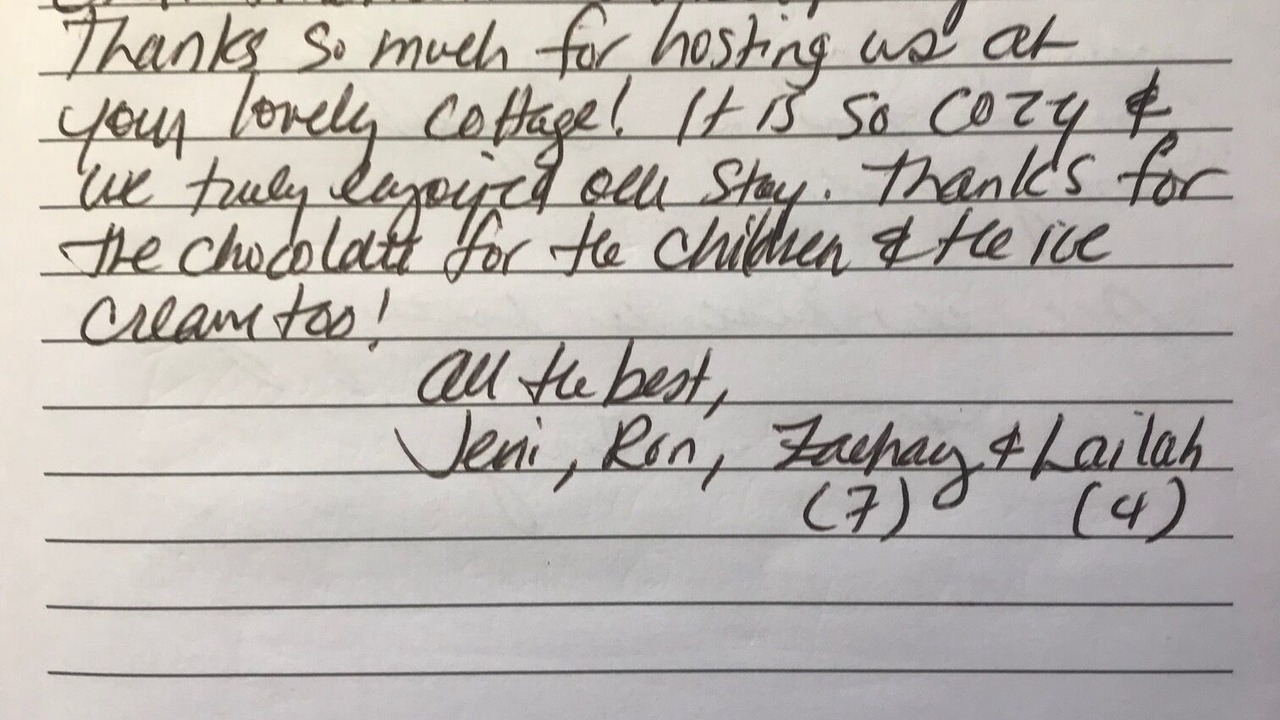 Thanks so much for hosting us at
your lovely cottage! It is so cozy &
we truly enjoyed our stay. Thanks for
the chocolate for the children & the ice
cream too!
All the best,
Jeni, Ron, Zachary & Lailah
(7) (4)